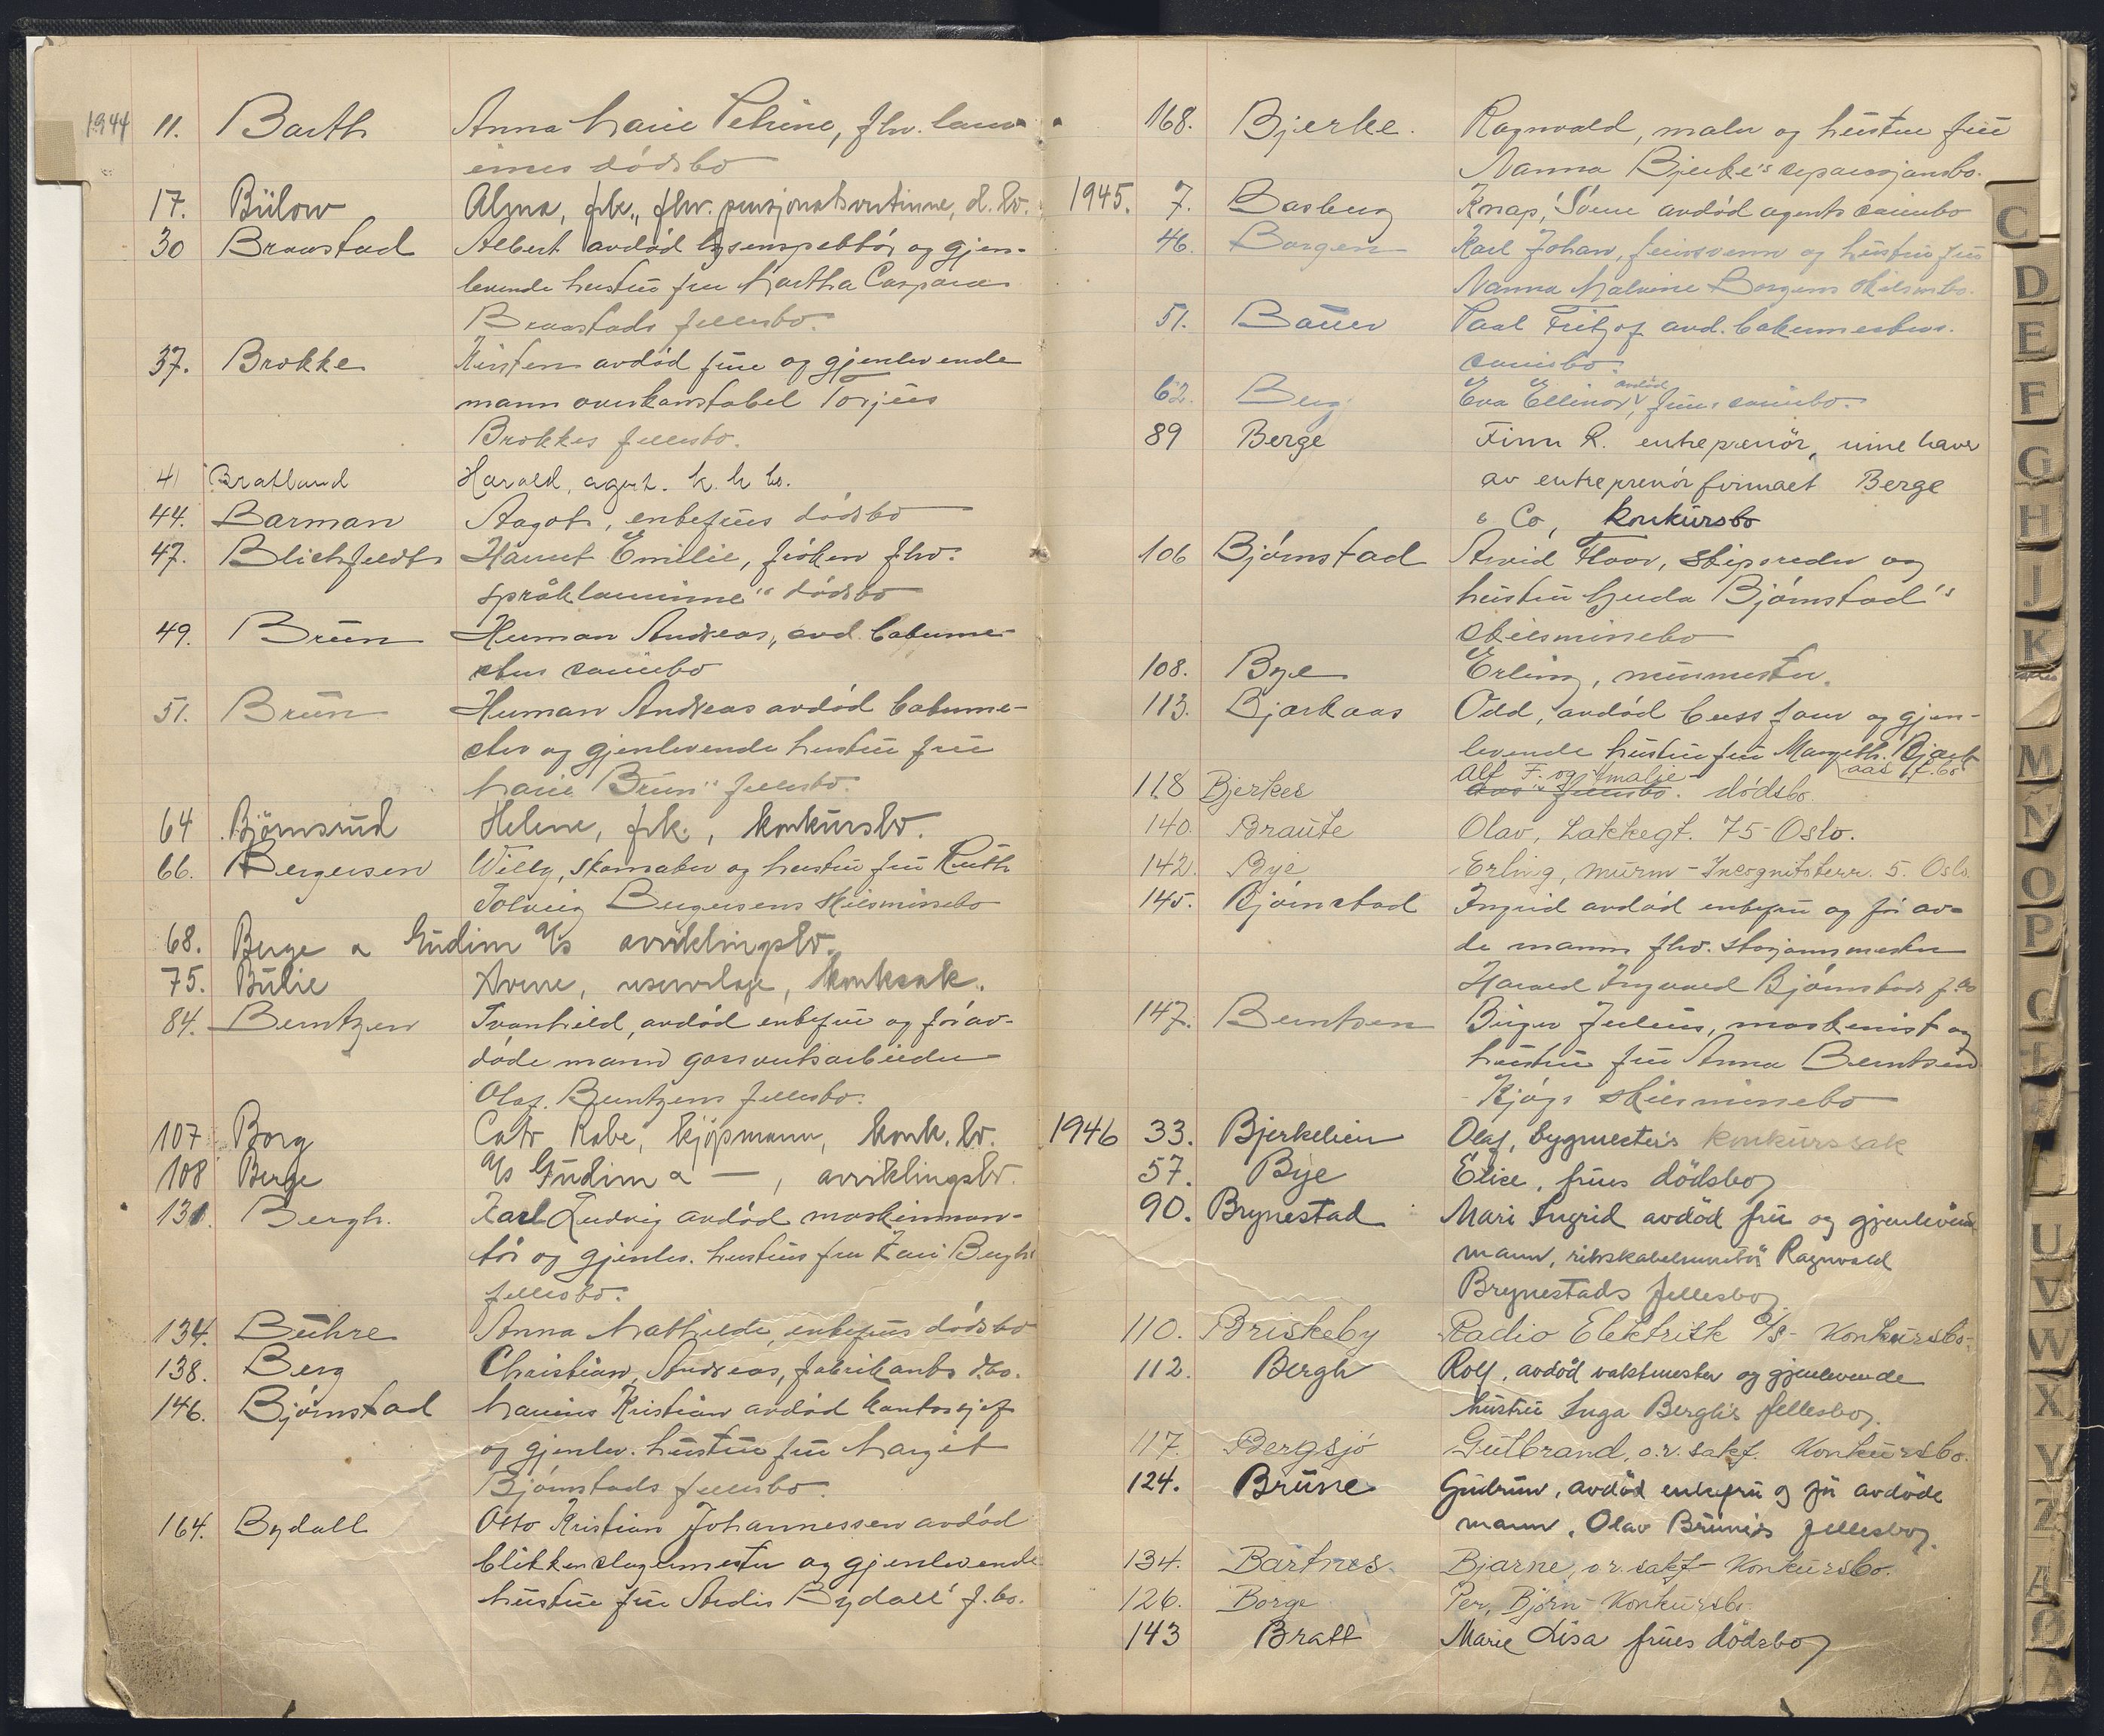 1944 11. Barth Anna Marie Petrine, fhv. lærer-
innes dødsbo
17. Bülow Alma, frk., fhv. pensjonatsvertinne, d. bo.
30 Braastad Albert avdød lysinspektør og gjen-
levende hustru fru Martha Caspara
Braastads fellesbo.
37. Brokke Kirsten avdød frue og gjenlevende
mann overkonstabel Torjus
Brokkes fellesbo.
41 Bratland Harald, agent. k. k. bo.
44. Barman Aagot, enkefrus dødsbo
47. Blichfeldt Harriet Emilie, frøken fhv.
språklærerinne's dødsbo
49. Bruun Herman Andreas, avd. bakerme-
sters samebo
51. Bruun Herman Andreas avdød bakerme-
ster og gjenlevende hustru fru
Marie Bruun's fellesbo.
64 Björnsrud Helene, frk., konkursbo.
66. Bergersen Willy, skomaker og hustru fru Ruth
Solveig Bergersens skilsmissebo
68. Berge & Gudim A/s avviklingsbo.
75. Bulie Arne, konksak.
84. Berntzen Svanhild, avdød enkefru og før av-
døde mann gassverksarbeider
Olaf Berntzens fellesbo.
107 Borg Cato Rabe, kjøpmann, konk. bo.
108 Berge A/s Gudim & — , avviklingsbo.
131. Bergh. Karl Ludvig avdød maskinmon-
tør og gjenlev. hustrus fru Kari Bergh's
fellesbo.
134. Buhre Anna Mathilde, enkefrus dødsbo
138. Berg Christian Andreas, fabrikants d.bo.
146. Bjørnstad Marius Kristian avdød kontorsjef
og gjenlev. hustru fru Margit
Bjørnstads fellesbo.
164. Bydall Otto Kristian Johannessen avdød
blikkenslagermester og gjenlevende
hustru fru Ardis Bydall' f.bo.
168. Bjerke. Ragnvald, maler og hustru fru
Nanna Bjerke's separasjonsbo.
1945. 7. Basberg Knap, Sørne avdød agents samebo
46. Borgen Karl Johan, feiersvenn og hustru fru
Nanna Malvine Borgens skilsm.bo.
51. Bauer Paal Fritjof avd. bakermesters
samebo.
62. Berg Eva Ellinor avdød, frues samebo.
89 Berge Finn R. entreprenör, innehaver
av entreprenörfirmaet Berge
& Co, konkursbo
106 Bjørnstad Arvid Floor, skipsreder og
hustru Gerda Bjørnstad's
skilsmissebo
108. Bye Erling, murmester.
113. Bjørkaas Odd, avdød bussjåfør og gjen-
levende hustru fru Margeth. Bjørk-
aas f.bo
118 Bjerkes Alf F. og Amalie
dødsbo
140. Braute Olav, Lakkegt. 75 - Oslo.
142. Bye Erling, murm - Incognitoterr. 5. Oslo.
145. Bjørnstad Ingrid avdød enkefru og før av-
de manns fhv. sjefsmester
Harald Ingvald Bjørnstads f.bo
147. Berntsen Birger Julius, maskinist og
hustru fru Anna Berntsen
Kjøgs skilsmissebo
1946 33. Bjerkelien Olaf, bygmesters konkurssak
57. Bye Elise, frues dödsbo
90. Brynestad Mari Ingrid avdöd fru og gjenlevende
mann, rikskabelmontör Ragnvald
Brynestads fellesbo
110. Briskeby Radio Elektrisk A/s - Konkursbo.
112. Bergh Rolf, avdöd vaktmester og gjenlevende
hustru Inga Bergh's fellesbo.
117. Bergsjø Gutbrand, o.r. sakf. Konkursbo.
124. Brune Gudrun, avdöd enkefru og för avdöde
mann, Olav Brune's fellesbo.
134. Bartnes. Bjarne, o.r. sakf - Konkursbo.
126. Borge Per, Björn - Konkursbo.
143 Bratt Marie Lisa frues dödsbo
C
D
E
F
G
H
J
K
M
N
O
P
U
V
W
X
Y
Z
Æ
Ø
A